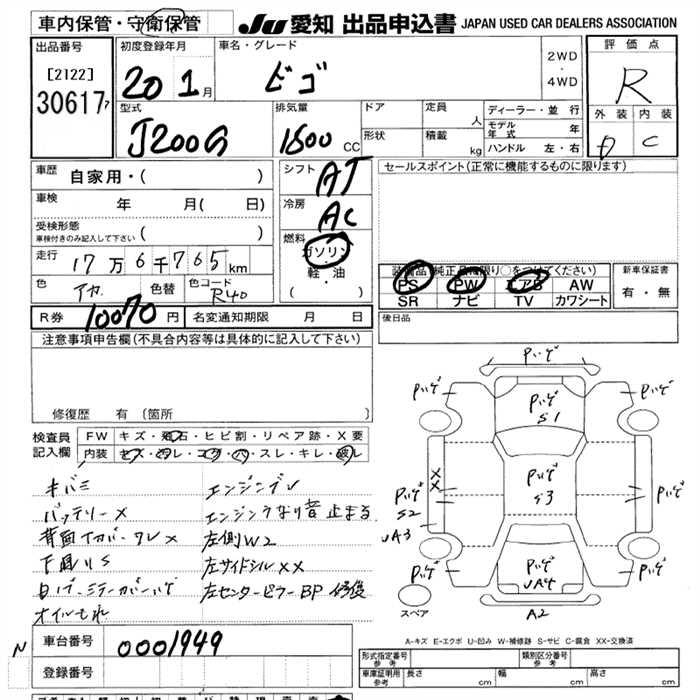 車内保管・守衛保管
JU 愛知 出品申込書 JAPAN USED CAR DEALERS ASSOCIATION
出品番号
[2122]
306177
初度登録年月
20 1月
車名・グレード
ビゴ
2WD
・
4WD
評価点
R
外装 内装
D C
型式
J200G
排気量
1500 CC
ドア
定員
人
形状
積載
kg
ディーラー・並行
モデル年式 年
ハンドル 左・右
車歴
自家用・( )
車検
年 月( 日)
受検形態
車検付きのみ記入して下さい ( )
走行
17万6千765km
色
アカ
色替
色コード
R40
シフト
AT
冷房
AC
燃料
ガソリン
・
軽・油
( )
セールスポイント(正常に機能するものに限ります)
装備品(純正品に限り○をつけてください)
PS PW エアB AW
SR ナビ TV カワシート
新車保証書
有・無
R券 10070円
名変通知期限 月 日
後日品
注意事項申告欄(不具合内容等は具体的に記入して下さい)
修復歴 有 〔箇所
検査員記入欄
FW キズ・飛石・ヒビ割・リペア跡・X要
内装 キズ・汚レ・コゲ・穴・スレ・キレ・破レ
キバミ
バッテリーX
下回りS
オイルもれ
エンジンうなり音止まる
左側W2
左サイドシルXX
左センターピラーBP修復
パゲ
パゲ
パゲ
パゲ
S1
XX
パゲ
S2
UA3
パゲ
S3
パゲ
パゲ
パゲ
UA4
パゲ
A2
スペア
A-キズ E-エクボ U-凹み W-補修跡 S-サビ C-腐食 XX-交換済
N
車台番号
0001949
登録番号
形式指定番号
参考
類別区分番号
参考
車庫証明用
参考
長さ cm
幅 cm
高さ cm